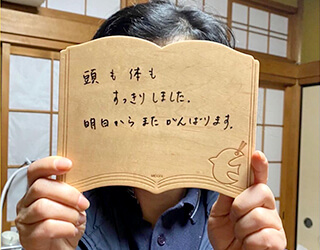 頭も体も
すっきりしました。
明日からまたがんばります。